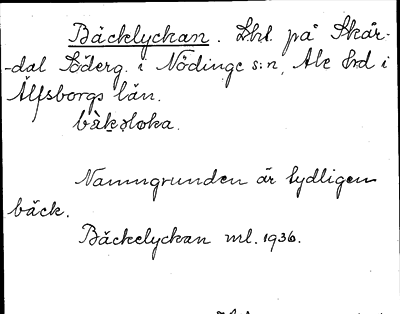 Bäcklyckan. Lht. på Skår-
-dal Söderg. i Nödinge s:n, Ale hd i
Älfsborgs län.
bàkəloka.
Namngrunden är tydligen
bäck.
Bäckelyckan ml. 1936.